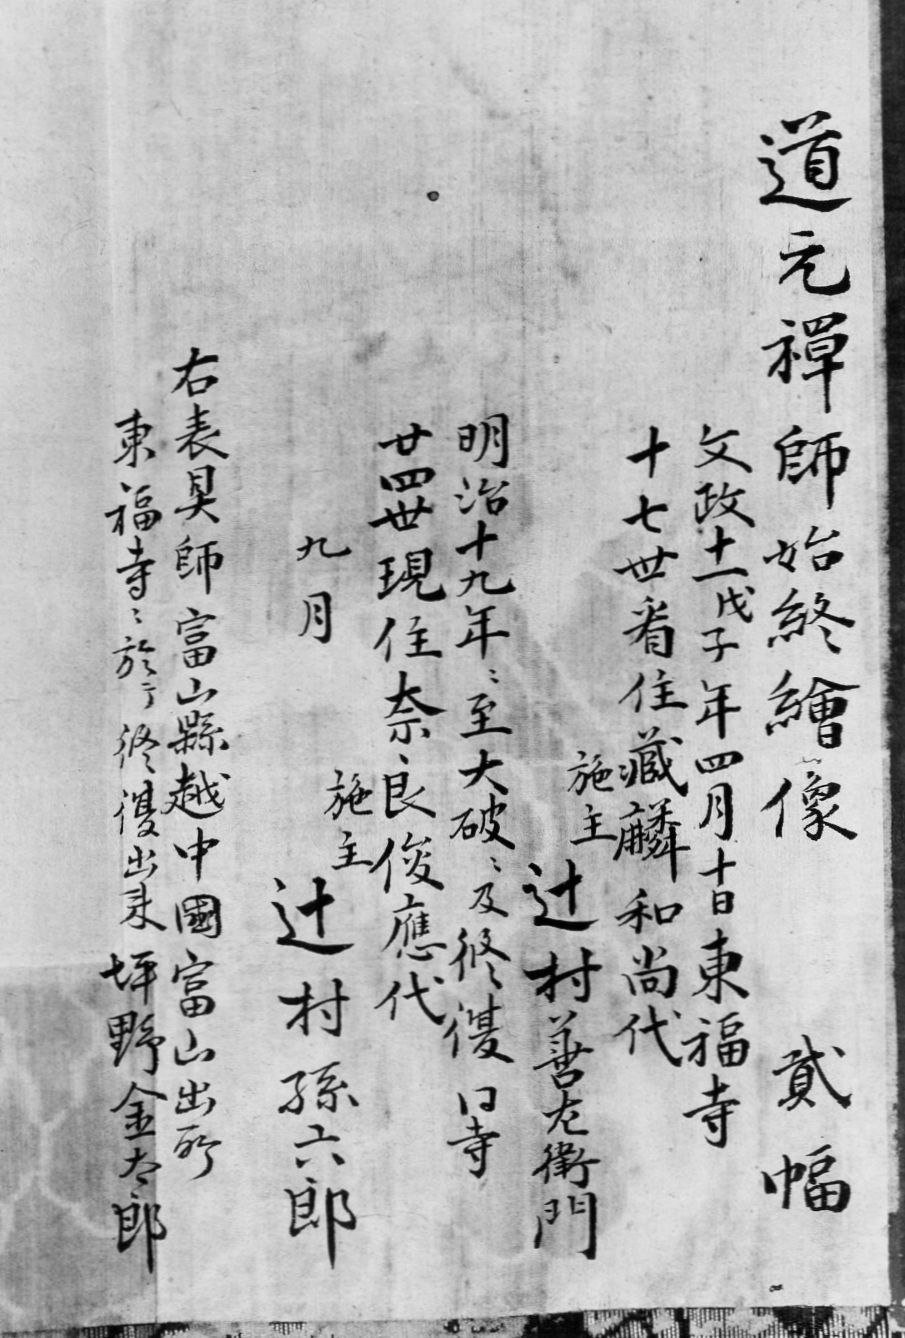 道元禅師始終繪像 貳幅
文政十一戊子年四月十日東福寺
十七世看住藏麟和尚代
施主 辻村善左衛門
明治十九年ミ至大破ミ及修復同寺
廿四世現住奈良俊應代
九月
施主 辻村孫六郎
右表具師富山縣越中國富山出所
東福寺ミ於テ修復出来 坪野金太郎